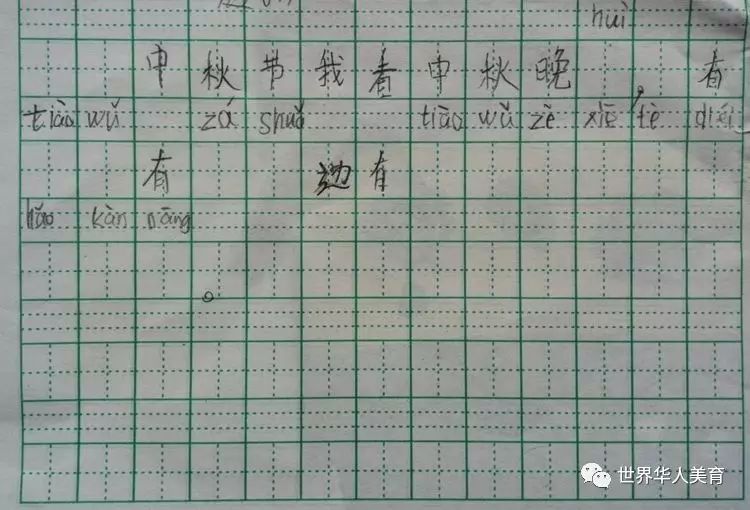 huì
中 秋 节 我 看 中 秋 晚 , 有
tiào wǔ zá shuǎ tiāo wǔ zè xiē tè
有 边 有
hǎo kàn nāng
。
世界华人美育